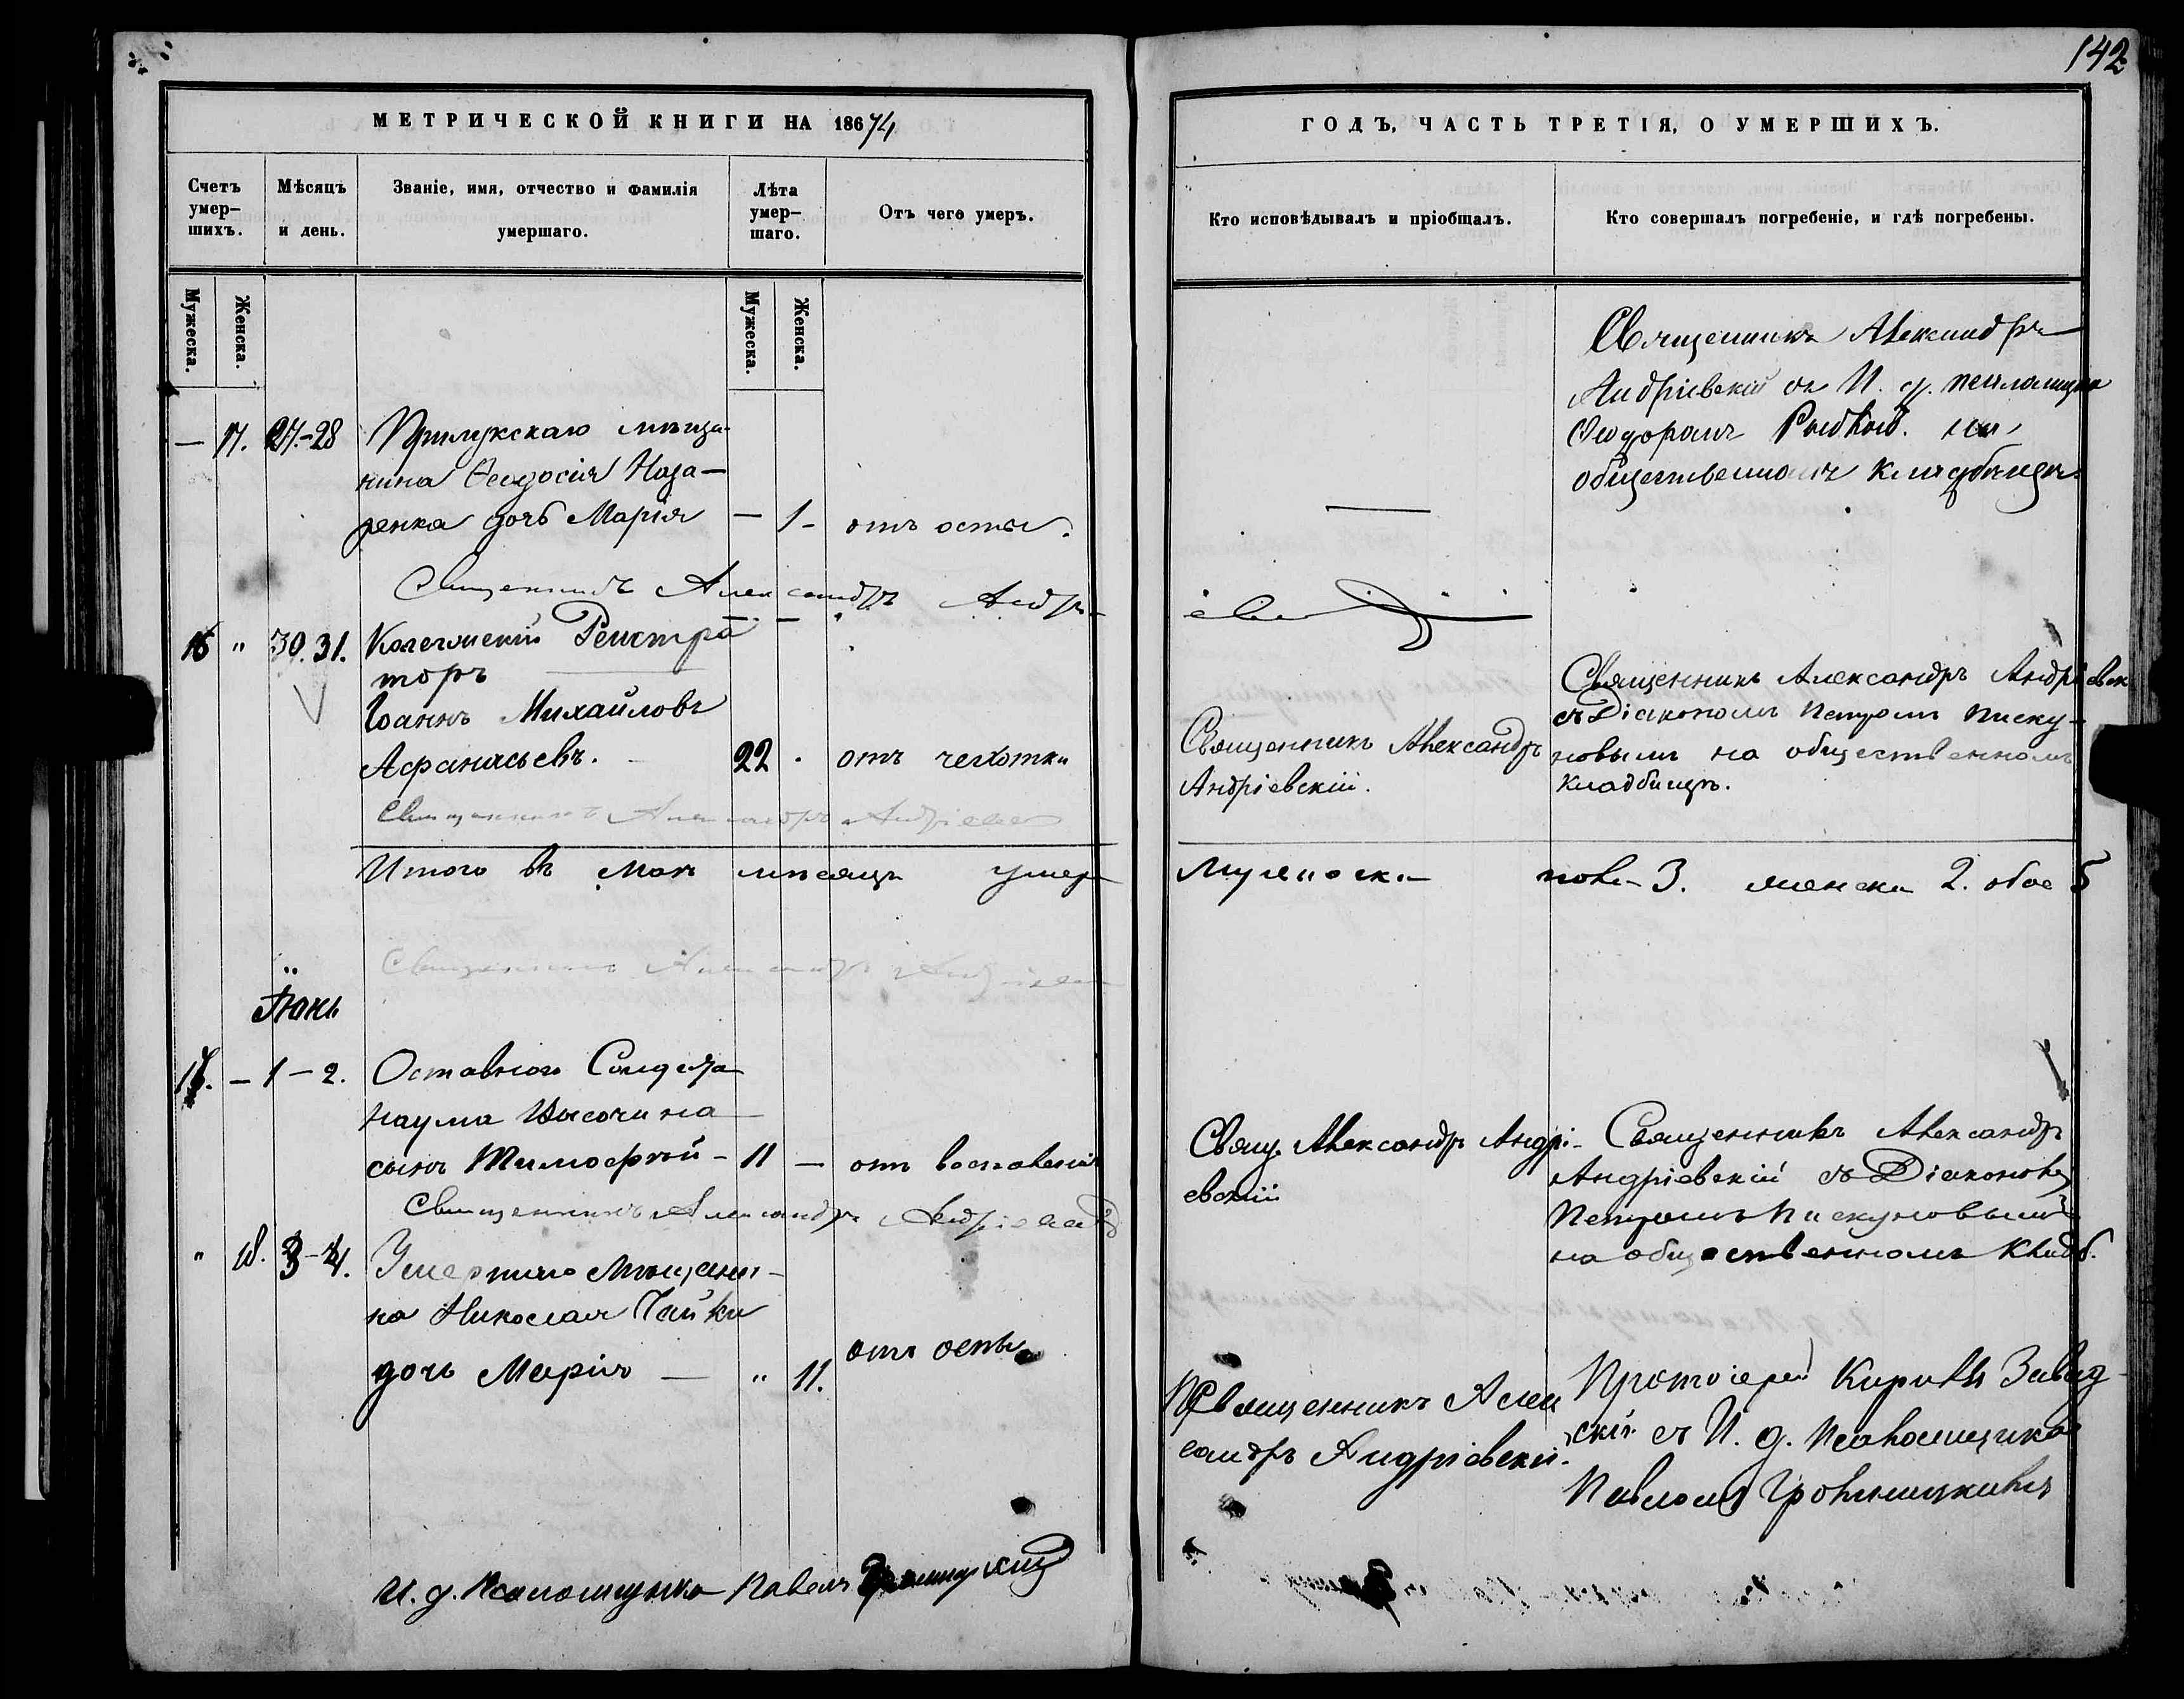 142
МЕТРИЧЕСКОЙ КНИГИ НА 18674
ГОДЪ, ЧАСТЬ ТРЕТІЯ, О УМЕРШИХЪ.
Счетъ умер-
шихъ.
Мѣсяцъ
и день.
Званіе, имя, отчество и фамилія
умершаго.
Лѣта
умер-
шаго.
Отъ чего умеръ.
Кто исповѣдывалъ и пріобщалъ.
Кто совершалъ погребеніе, и гдѣ погребены.
Мужеска.
Женска.
Мужеска.
Женска.
— 17. 27.-28 Прилукскаго мѣща-
нина Ѳеодосія Наза-
ренка дочь Марія — 1- отъ оспы.
Священникъ Александръ
Андріевскій съ И. д. псаломщика
Ѳеодоромъ на
общественномъ кладбищѣ.
Священникъ Александръ Андрі-
евскій
16 " 30.31. Колежскій Регистра
торъ
Іоаннъ Михайловъ
Афанасьевъ. 22 . отъ чехотки
Священникъ Александръ
Андріевскій.
Священникъ Александръ Андріевск
съ Діакономъ Петромъ Писку-
новымъ на общественномъ
кладбищѣ.
Священникъ Александръ Андріевск
Итого въ Маѣ мѣсяцѣ умер мужеска пола 3. женска 2. обое 5
Священникъ Александръ Андріевск
Іюнь
— 1-2. Оставного Солдата
Наума Высочина
сынъ Тимофѣй - 11 — отъ воспаленія
Свящ. Александръ Андрі-
евскій
Священникъ Александръ
Андріевскій съ Діакономъ
Петромъ Пискуновымъ
на общественномъ кладб.
Священникъ Александръ Андріевскій
" 18. 3-4. Умершаго Мѣщани-
на Николая Чайки
дочь Марія — " 11. отъ оспы
Священникъ Алек
сандръ Андріевскі.
Протоіерей Кирилъ Завад-
скій съ И. д. Псаломщика
Павломъ
И. д. Псаломщика Павелъ